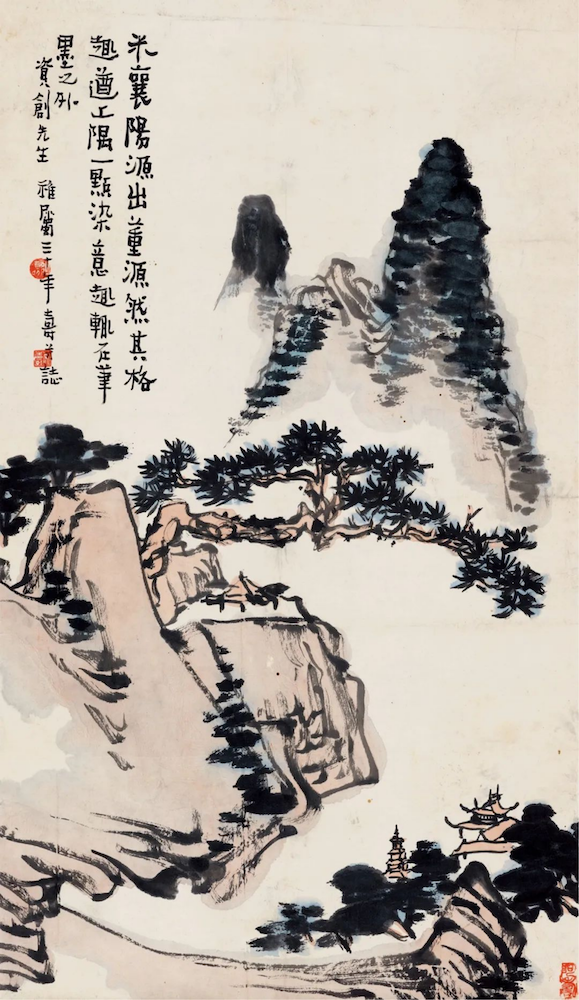 米襄陽源出董源然其格
趣遒上隅一點染意趣輒在筆
墨之外
資創先生 雅屬三十年壽 誌